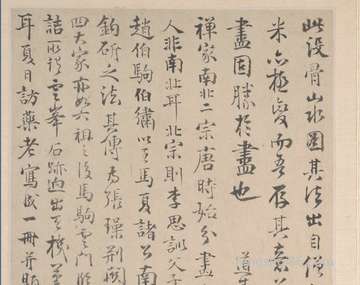 此没骨山水圖其法出自僧
米亦極變而吾存其意
畫固勝於畫也
禪家南北二宗唐時始分畫
人非南北耳北宗則李思訓父子
趙伯駒伯驌以至馬夏諸公南
鈎研之法其傳為張璪荊關
四大家亦如六祖之後馬駒雲門
詰所謂雲峯石跡迥出天機筆
耳夏日訪藥老寫成一冊并